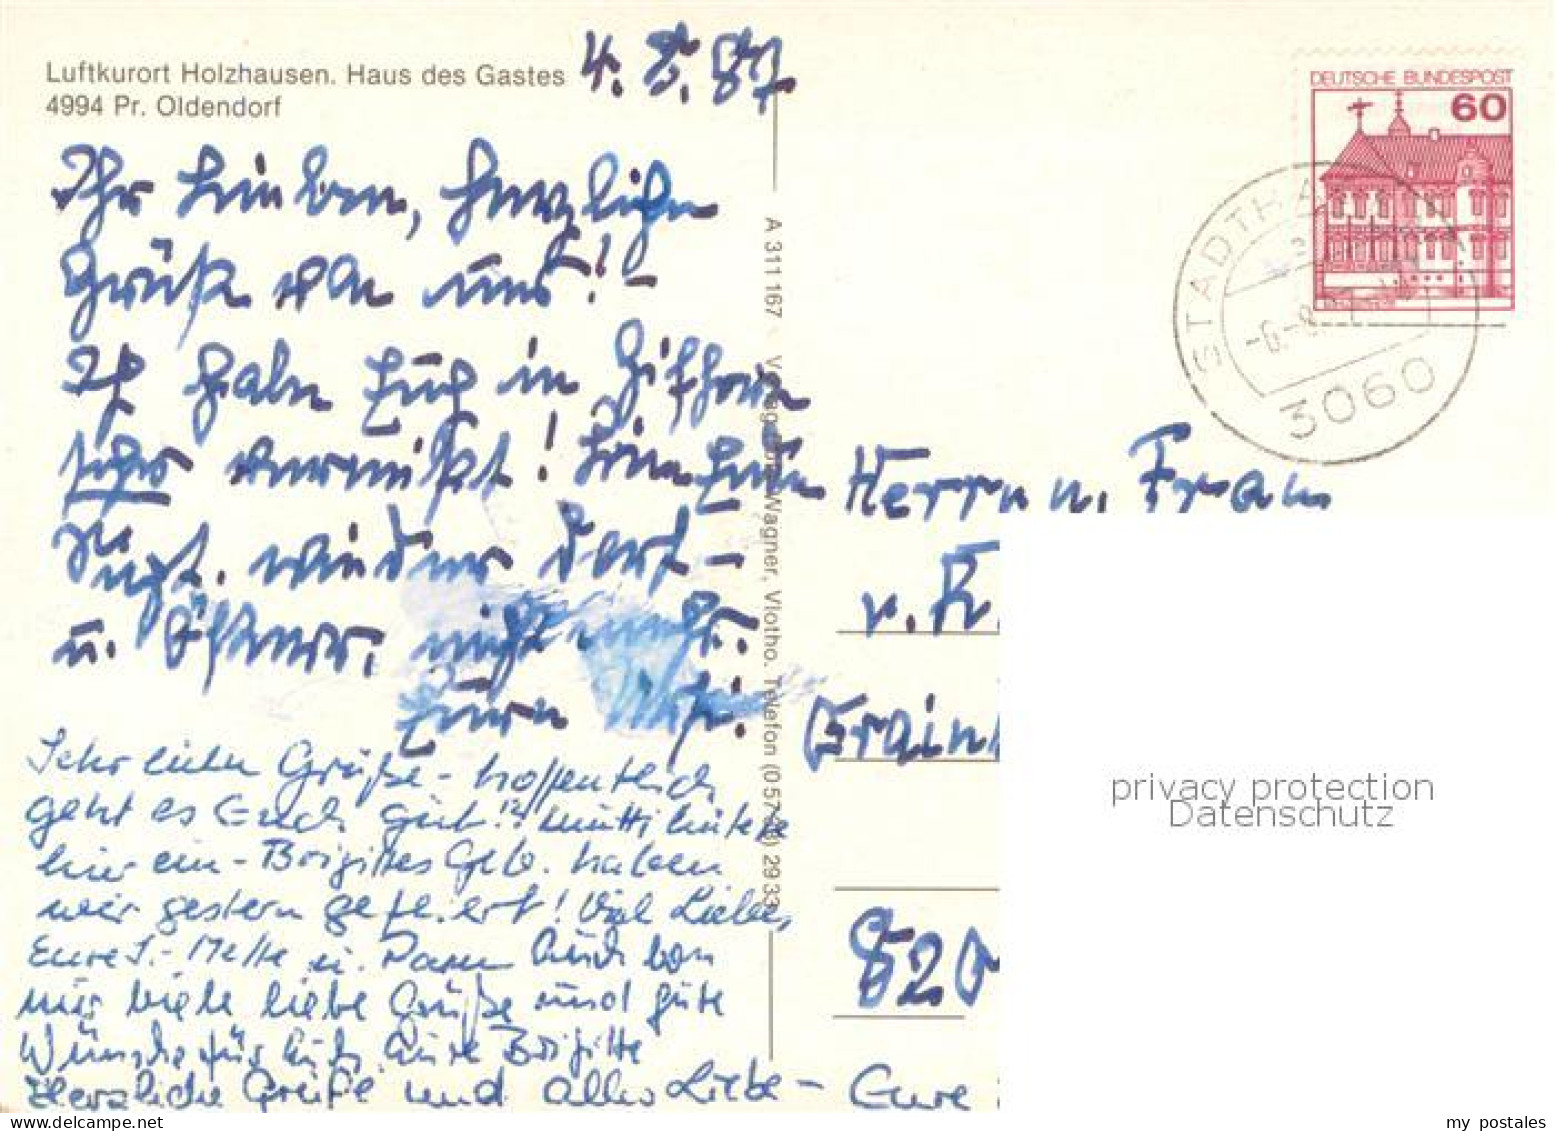 Luftkurort Holzhausen. Haus des Gastes
4994 Pr. Oldendorf
4. 8. 87
Ihr Lieben, herzliche
Grüße von uns! -
Ich habe Euch in Gifhorn
sehr vermißt!
wieder dort -
u. Öfterer, nicht mehr.
Eure
Sehr liebe Grüße - hoffentlich
geht es Euch gut!? Mutti hütete
hier ein - Brigittes Geb. haben
wir gestern gefeiert! Viel Liebe,
Eure u. Auch von
mir viele liebe Grüße und gute
Wünsche für Euch Eure Brigitte
Herzliche Grüße und alles Liebe - Eure
A 311 167 Wagner, Vlotho. Telefon (0 57 33) 29 33
DEUTSCHE BUNDESPOST
60
STADTHA
3060
Herrn u. Frau
v. K
Grain
820
privacy protection
Datenschutz
my postales